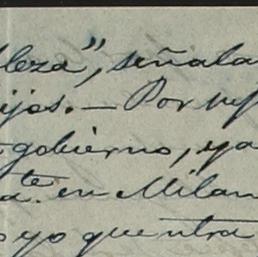 leza", señala
ijos. — Por
gobierno, ya
te. en Milan
yo que ntra